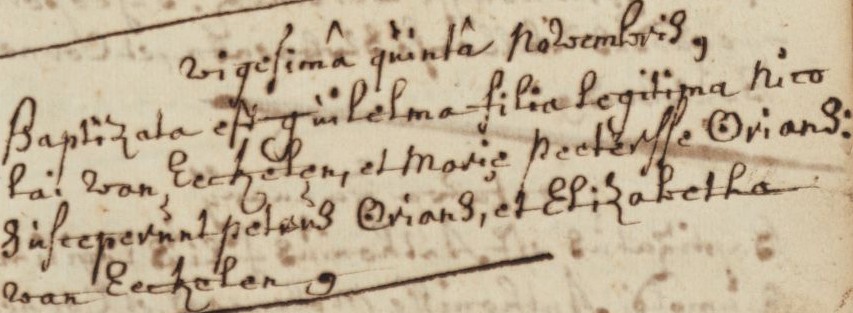 vigesimâ quintâ Novembris,
Baptizata est guilelma filia legitima Nico
lai van Eeckelen, et Marię Peetersse Orians:
Susceperunt petrus Orians, et Elizabetha
van Eeckelen,